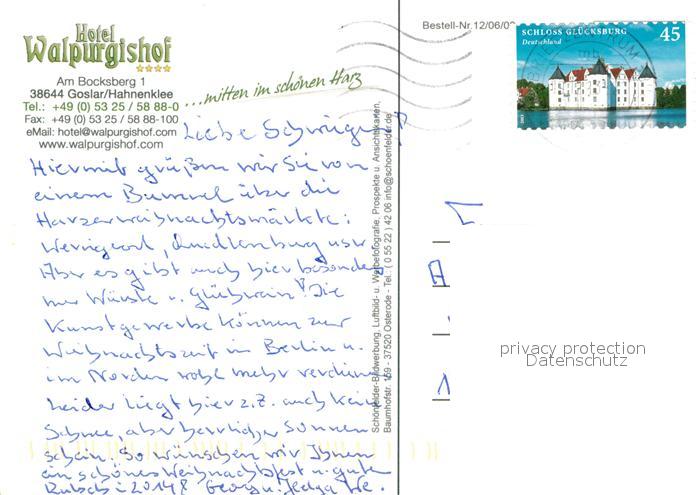 Hotel
Walpurgishof
Am Bocksberg 1
38644 Goslar/Hahnenklee
Tel.: +49 (0) 53 25 / 58 88-0
Fax: +49 (0) 53 25 / 58 88-100
eMail: hotel@walpurgishof.com
www.walpurgishof.com
...mitten im schönen Harz
Bestell-Nr.12/06/0
SCHLOSS GLÜCKSBURG 45
Deutschland
Liebe
Hiermit grüßen wir Sie von
einem Bummel über die
Harzerweihnachtsmärkte:
usw
Aber es gibt auch hier besonders
nur Würste u. Glühwein! Die
Kunstgewerbe können zur
Weihnachtszeit in Berlin u.
im Norden wohl mehr verdienen
Leider liegt hier z.Z. auch kein
Schnee aber herrlicher Sonnen
schein. So wünschen wir Ihnen
ein schönes Weihnachtsfest u. gute
Rutsch i 2014! Georg u.
Schönfelder-Bildwerbung, Luftbild- u. Werbefotografie, Prospekte u. Ansichtskarten,
Baumhofstr. 159 - 37520 Osterode - Tel.: ( 0 55 22 ) 42 06 info@schoenfelder.de
privacy protection
Datenschutz